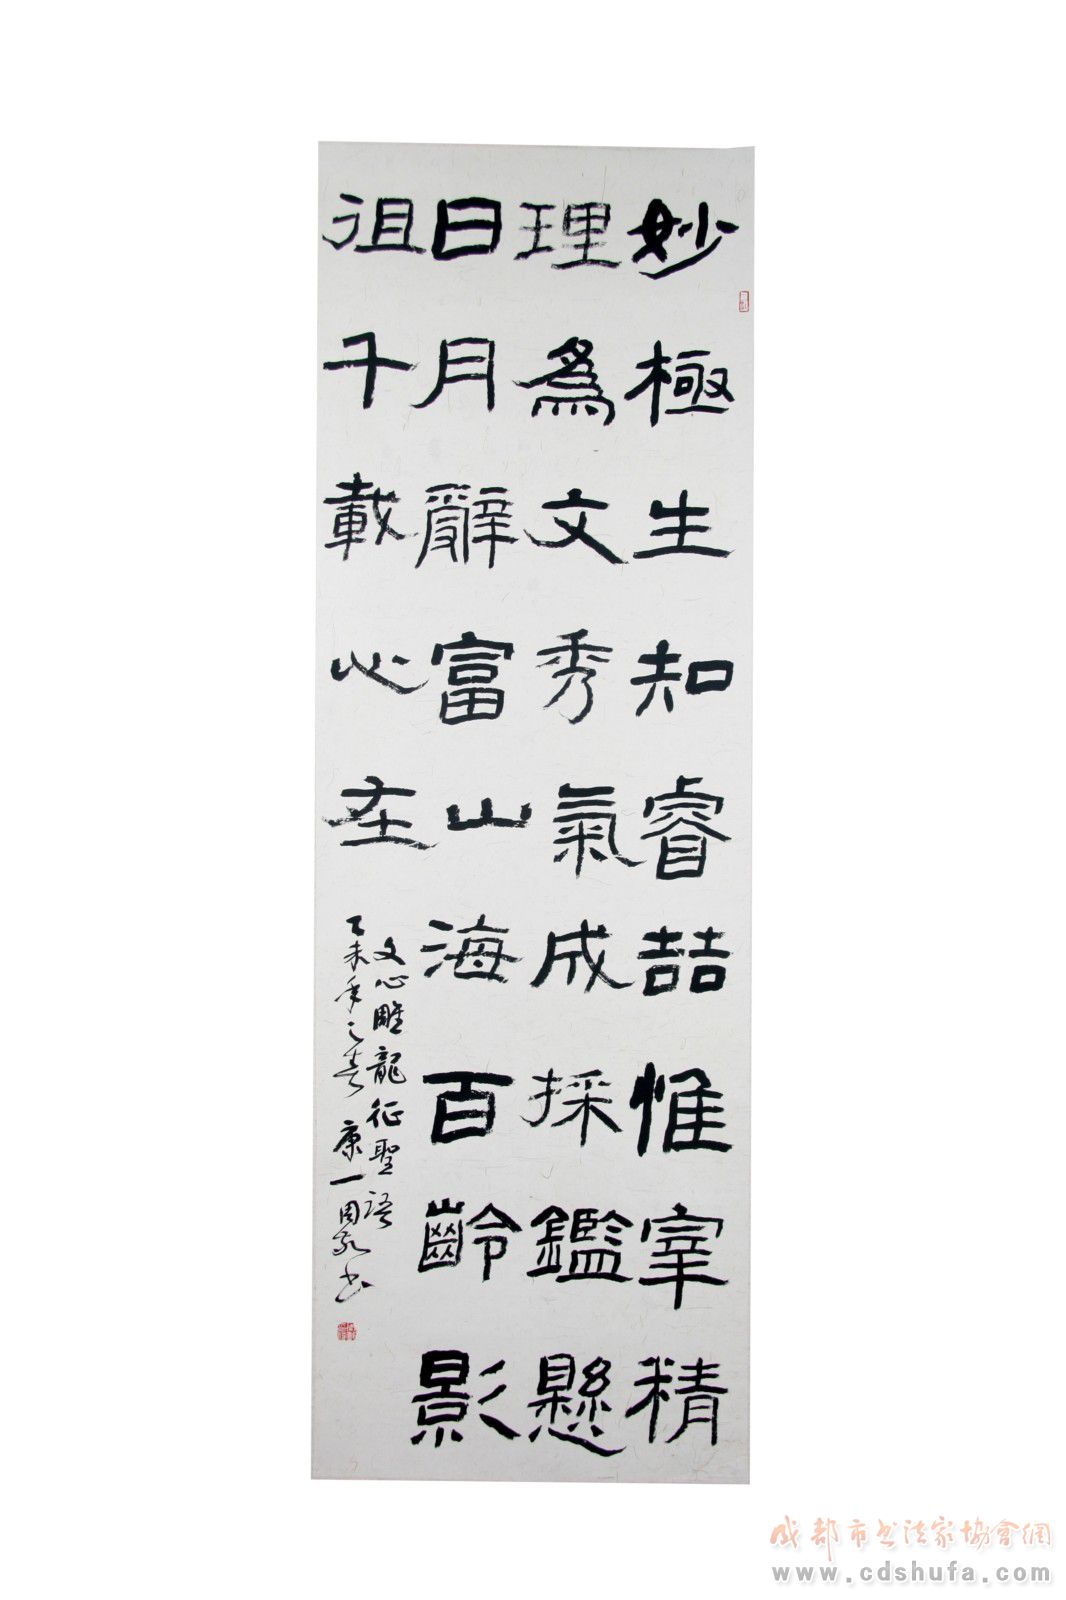 妙極生知睿喆惟宰精
理為文秀氣成採鑑懸
日月辭富山海百齡影
徂千載心在
文心雕龍征聖語
乙未年之春康一周永書
成都市书法家协會網
www.cdshufa.com